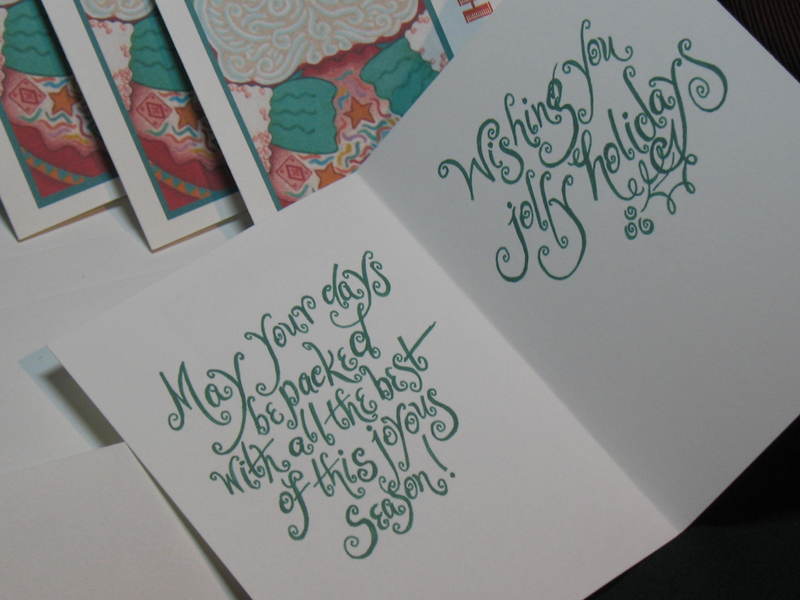 May your days
be packed
with all the best
of this joyous
season!
Wishing you
jolly holidays